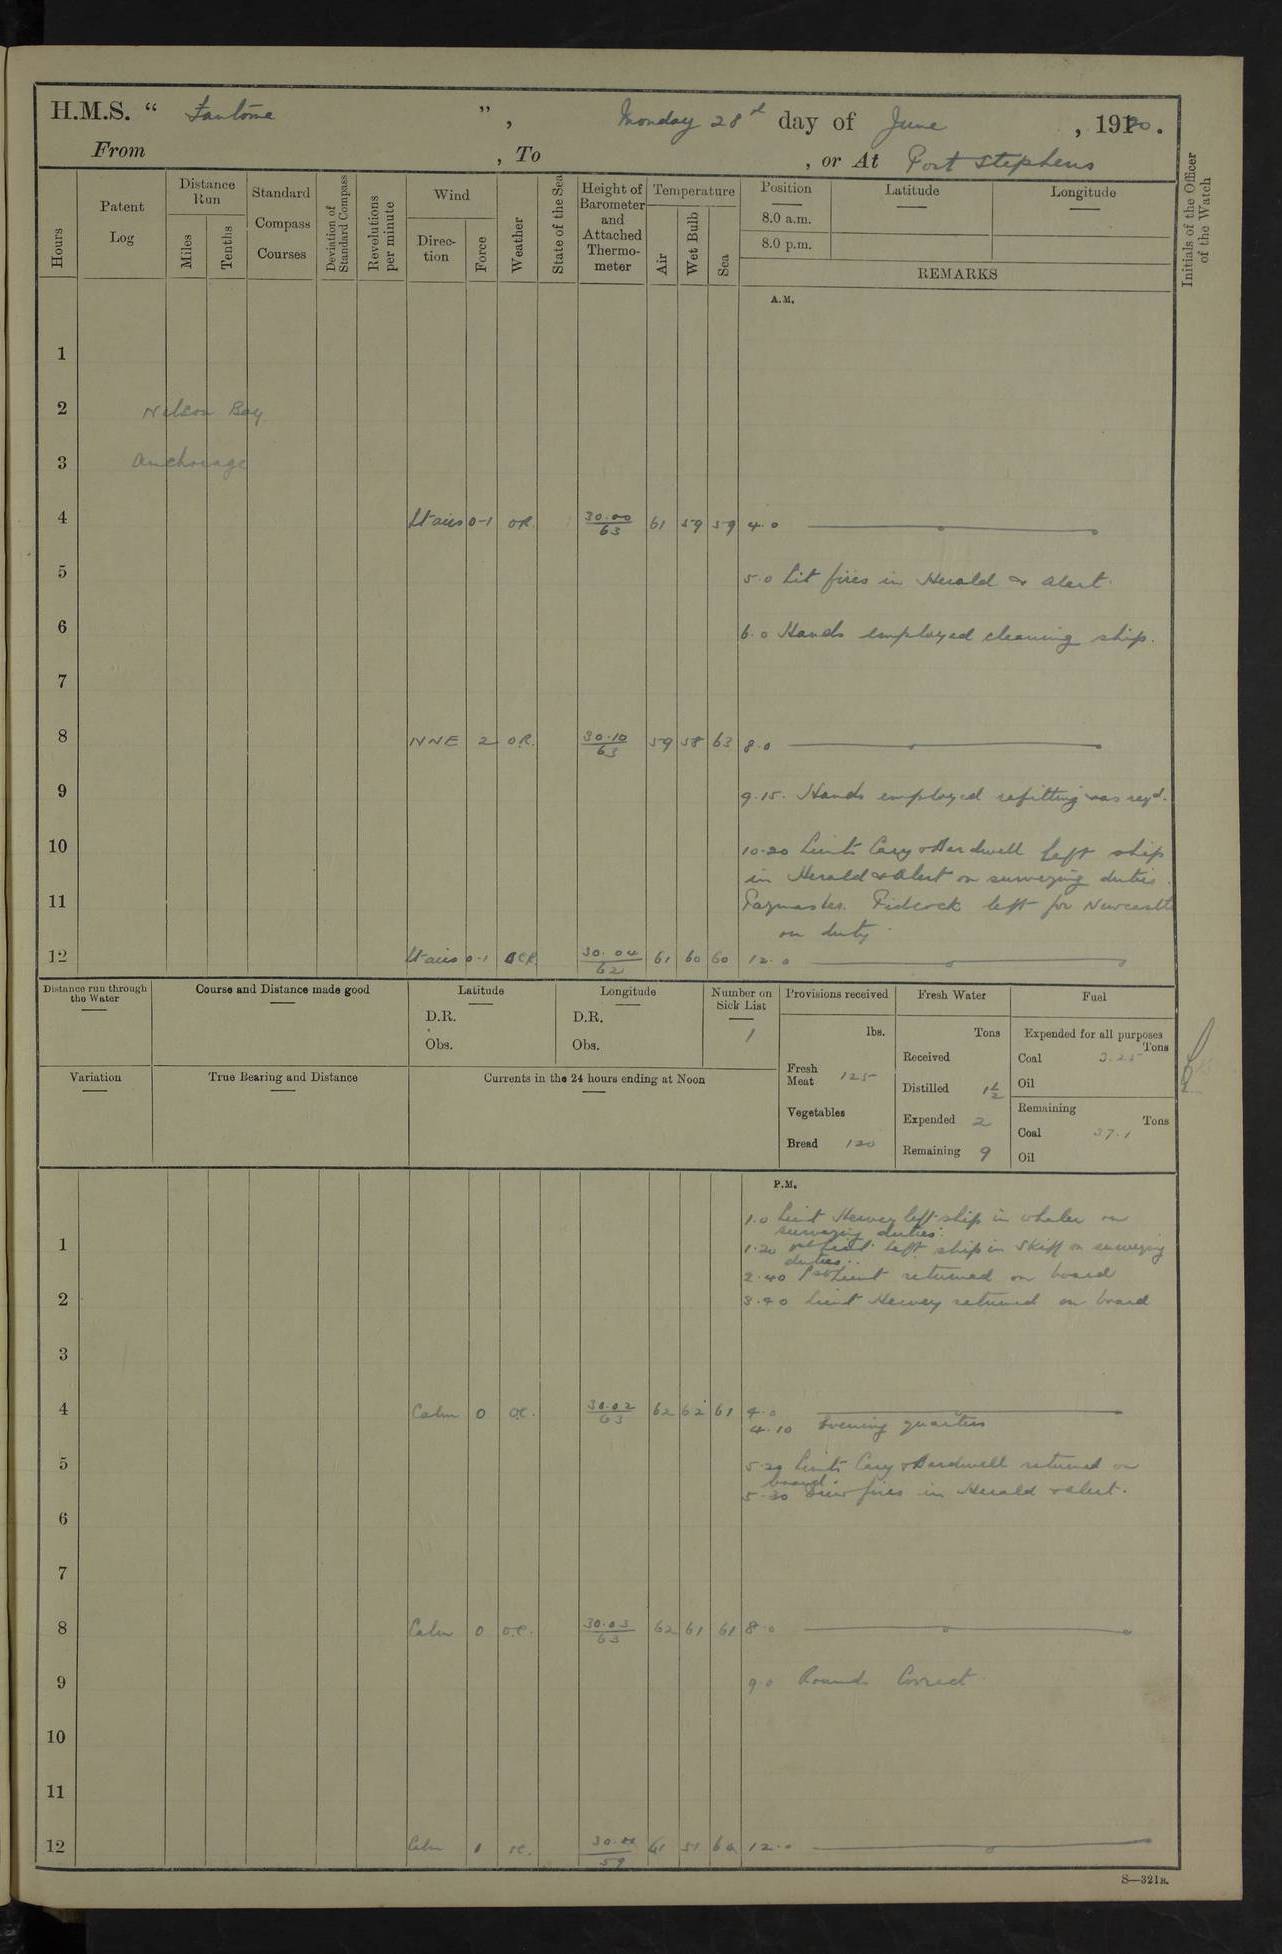 H.M.S. “ Fantome ” , Monday 28th day of June , 1920 .
From , To , or At Port Stephens
Hours
Patent Log
Distance Run
Miles
Tenths
Standard Compass Courses
Deviation of Standard Compass
Revolutions per minute
Wind
Direc-tion
Force
Weather
State of the Sea
Height of Barometer and Attached Thermo-meter
Temperature
Air
Wet Bulb
Sea
Position
8.0 a.m.
8.0 p.m.
Latitude
Longitude
REMARKS
Initials of the Officer of the Watch
A.M.
1
2 Nelson Bay
3 Anchorage
4 Lt airs 0-1 OR. 30.00 63 61 59 59 4.0
5 5.0 Lit fires in Herald & Alert.
6 6.0 Hands employed cleaning ship.
7
8 NNE 2 O.R. 30.10 63 59 58 63 8.0
9 9.15. Hands employed refitting & as reqd.
10 10.20 Lieuts Cary & Bardwell left ship
in Herald & Alert on surveying duties.
11 Paymaster Pidcock left for Newcastle
on duty.
12 Lt airs 0-1 OCR 30.04 62 61 60 60 12.0
Distance run through the Water
Course and Distance made good
Latitude
D.R.
Obs.
Longitude
D.R.
Obs.
Number on Sick List
1
Provisions received
lbs.
Fresh Meat 125
Vegetables
Bread 120
Fresh Water
Tons
Received
Distilled 1½
Expended 2
Remaining 9
Fuel
Expended for all purposes
Tons
Coal 3.25
Oil
Remaining
Tons
Coal 37.1
Oil
Variation
True Bearing and Distance
Currents in the 24 hours ending at Noon
P.M.
1.0 Lieut Hervey left ship in whaler on
surveying duties.
1 1.20 left ship in skiff on surveying
duties.
2.40 Lieut returned on board
2 3.40 Lieut Hervey returned on board
3
4 Calm 0 O.C. 30.02 63 62 62 61 4.0
4.10 Evening quarters
5 5.20 Lieuts Cary & Bardwell returned on
board.
5.30 Drew fires in Herald & Alert.
6
7
8 Calm 0 O.C. 30.03 63 62 61 61 8.0
9 9.0 Rounds Correct
10
11
12 Calm 59 61 12.0
S—321B.